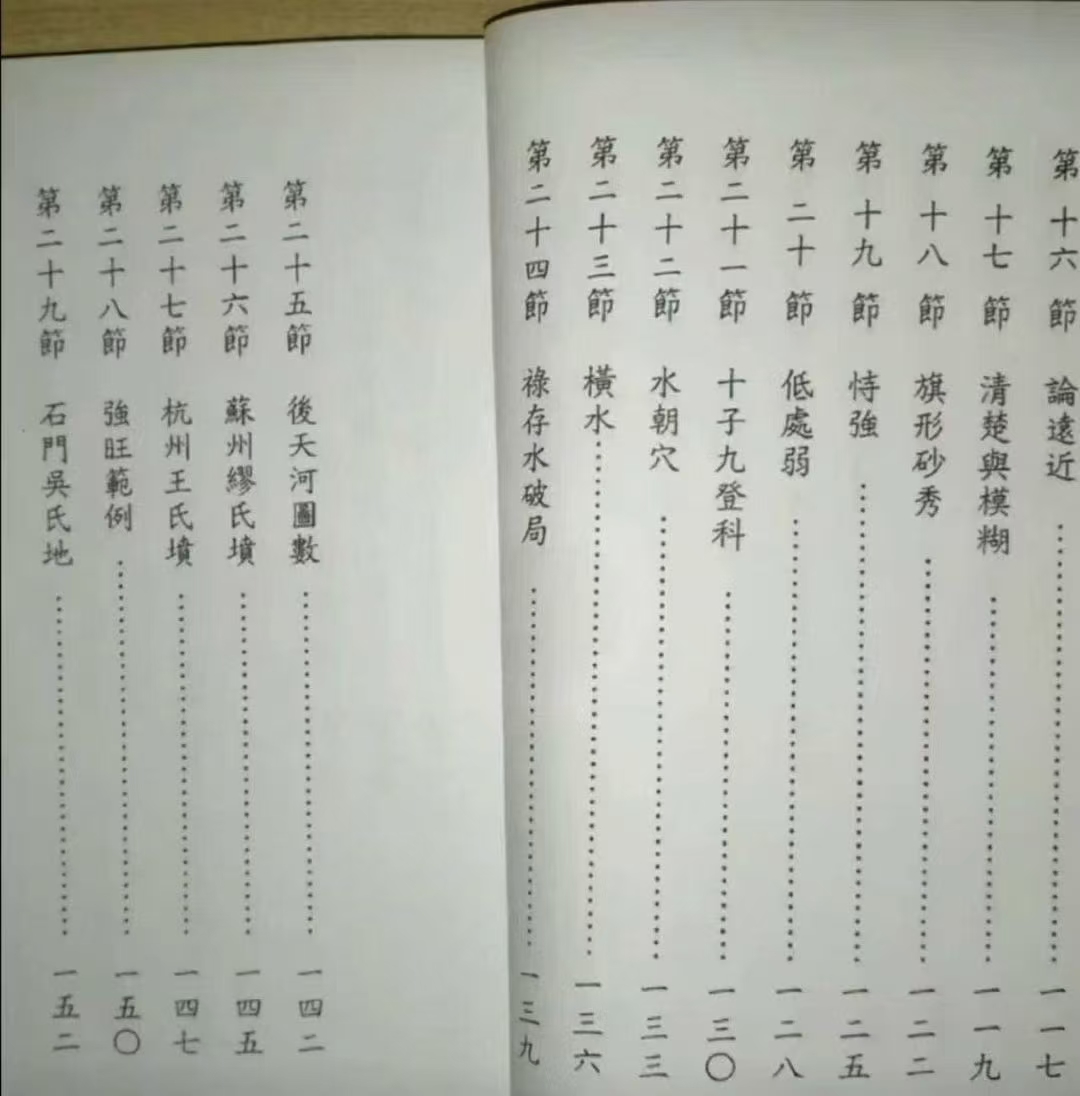 第十六節 論遠近……一一七
第十七節 清楚與模糊……一一九
第十八節 旗形砂秀……一二二
第十九節 恃強……一二五
第二十節 低處弱……一二八
第二十一節 十子九登科……一三〇
第二十二節 水朝穴……一三三
第二十三節 橫水……一三六
第二十四節 祿存水破局……一三九
第二十五節 後天河圖數……一四二
第二十六節 蘇州繆氏墳……一四五
第二十七節 杭州王氏墳……一四七
第二十八節 強旺範例……一五〇
第二十九節 石門吳氏地……一五二